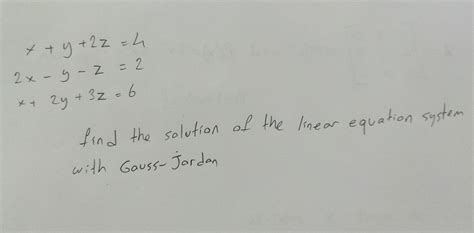 x + y + 2z = 4
2x - y - z = 2
x + 2y + 3z = 6
find the solution of the linear equation system
with Gauss-Jordan